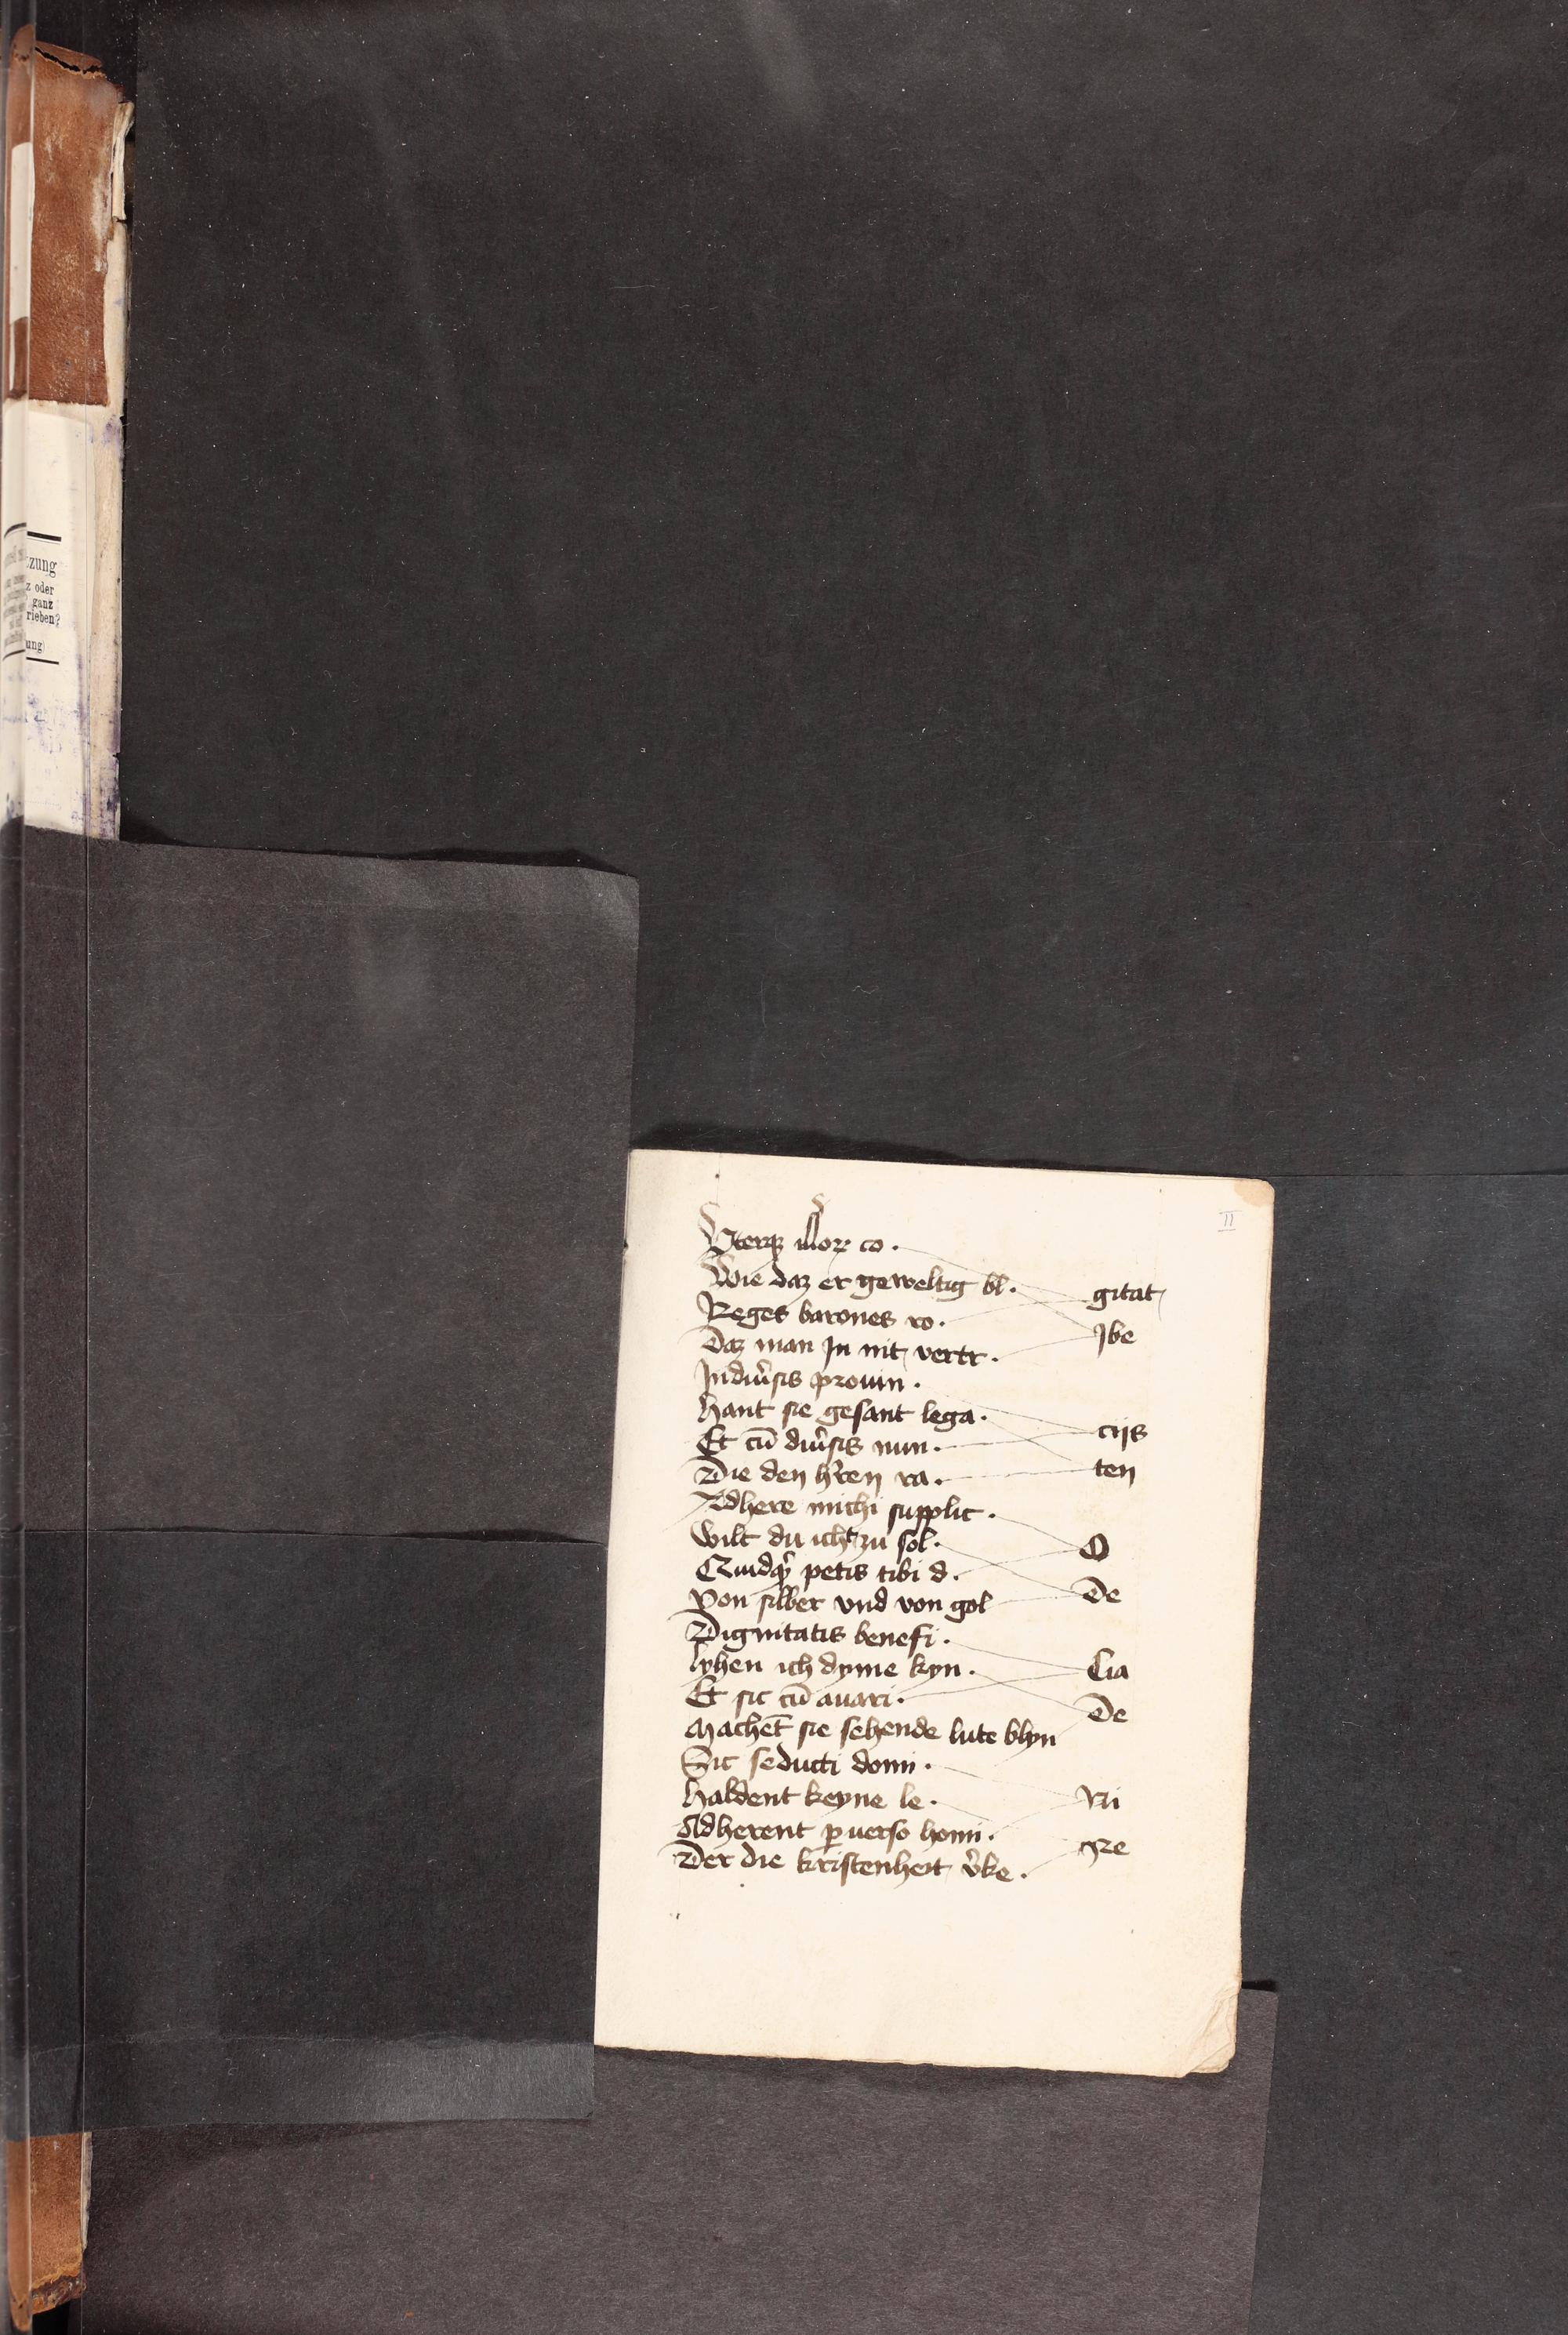 zung
z oder
ganz
rieben?
ung)
II
Vterqꝫ illoꝝ co .
Wie daz er geweltig bl .
gitat
Reges barones ro .
Daz man Jn nit vertr .
Jbe
Jndiu̾sis prouin .
Hant sie gesant lega .
cijs
Et cū diu̾sis nun .
Die den h̾ren ra .
ten
Adhere michi supplic .
Wilt du icht zu sol .
O
Quidqͥ petis tibi d .
Von silber vnd von gol
De
Dignitatis benefi .
Lyhen ich dyme kyn .
Cia
Et sic cū auari .
Machet̄ sie sehende lute blyn
De
Sic seducti domi .
Haldent keyne le .
Ni
Adherent ꝑuerso homi .
Der die kristenheit v̾ke .
Re